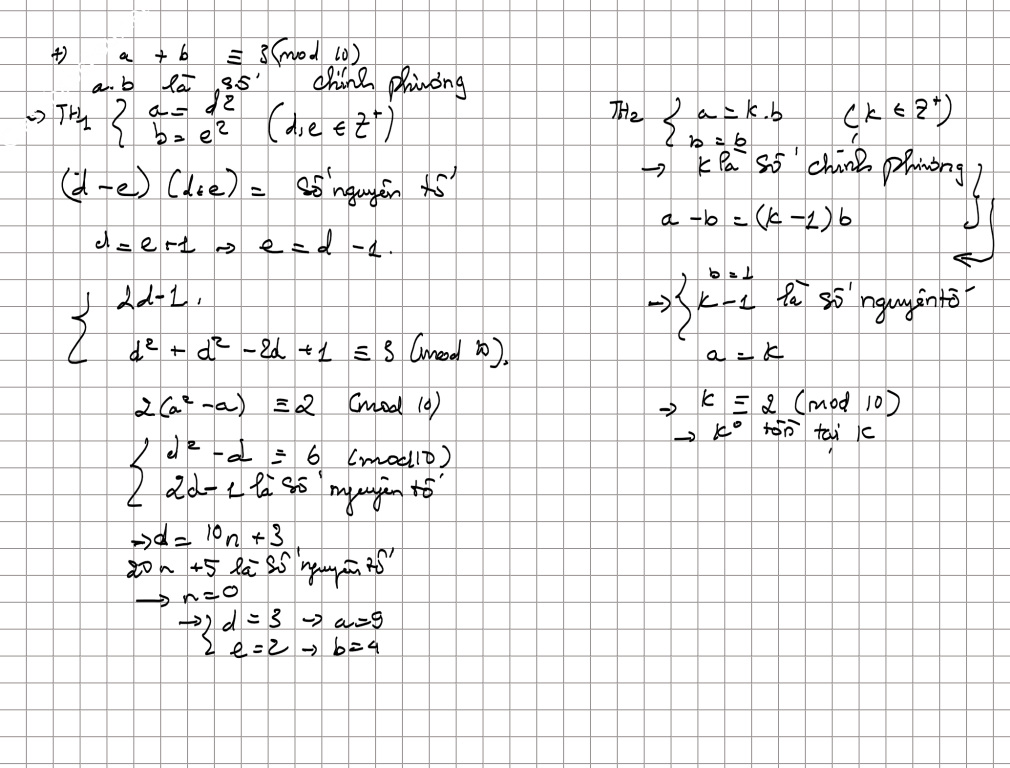 +) a + b ≡ 3 (mod 10)
a.b là số chính phương
→ TH1 { a = d²
b = e² (d,e ∈ Z⁺)
(d-e)(d+e) = số nguyên tố
d = e+1 → e = d-1.
{ 2d-1.
d² + d² - 2d + 1 ≡ 3 (mod 10).
2(a² - a) ≡ 2 (mod 10)
{ d² - d ≡ 6 (mod 10)
2d-1 là số nguyên tố
→ d = 10n + 3
20n + 5 là số nguyên tố
→ n = 0
→ { d = 3 → a = 9
e = 2 → b = 4
TH2 { a = k.b (k ∈ Z⁺)
b = b
→ k là số chính phương
a - b = (k-1)b
→ { b = 1
k-1 là số nguyên tố
a = k
→ k ≡ 2 (mod 10)
→ k° tồn tại k